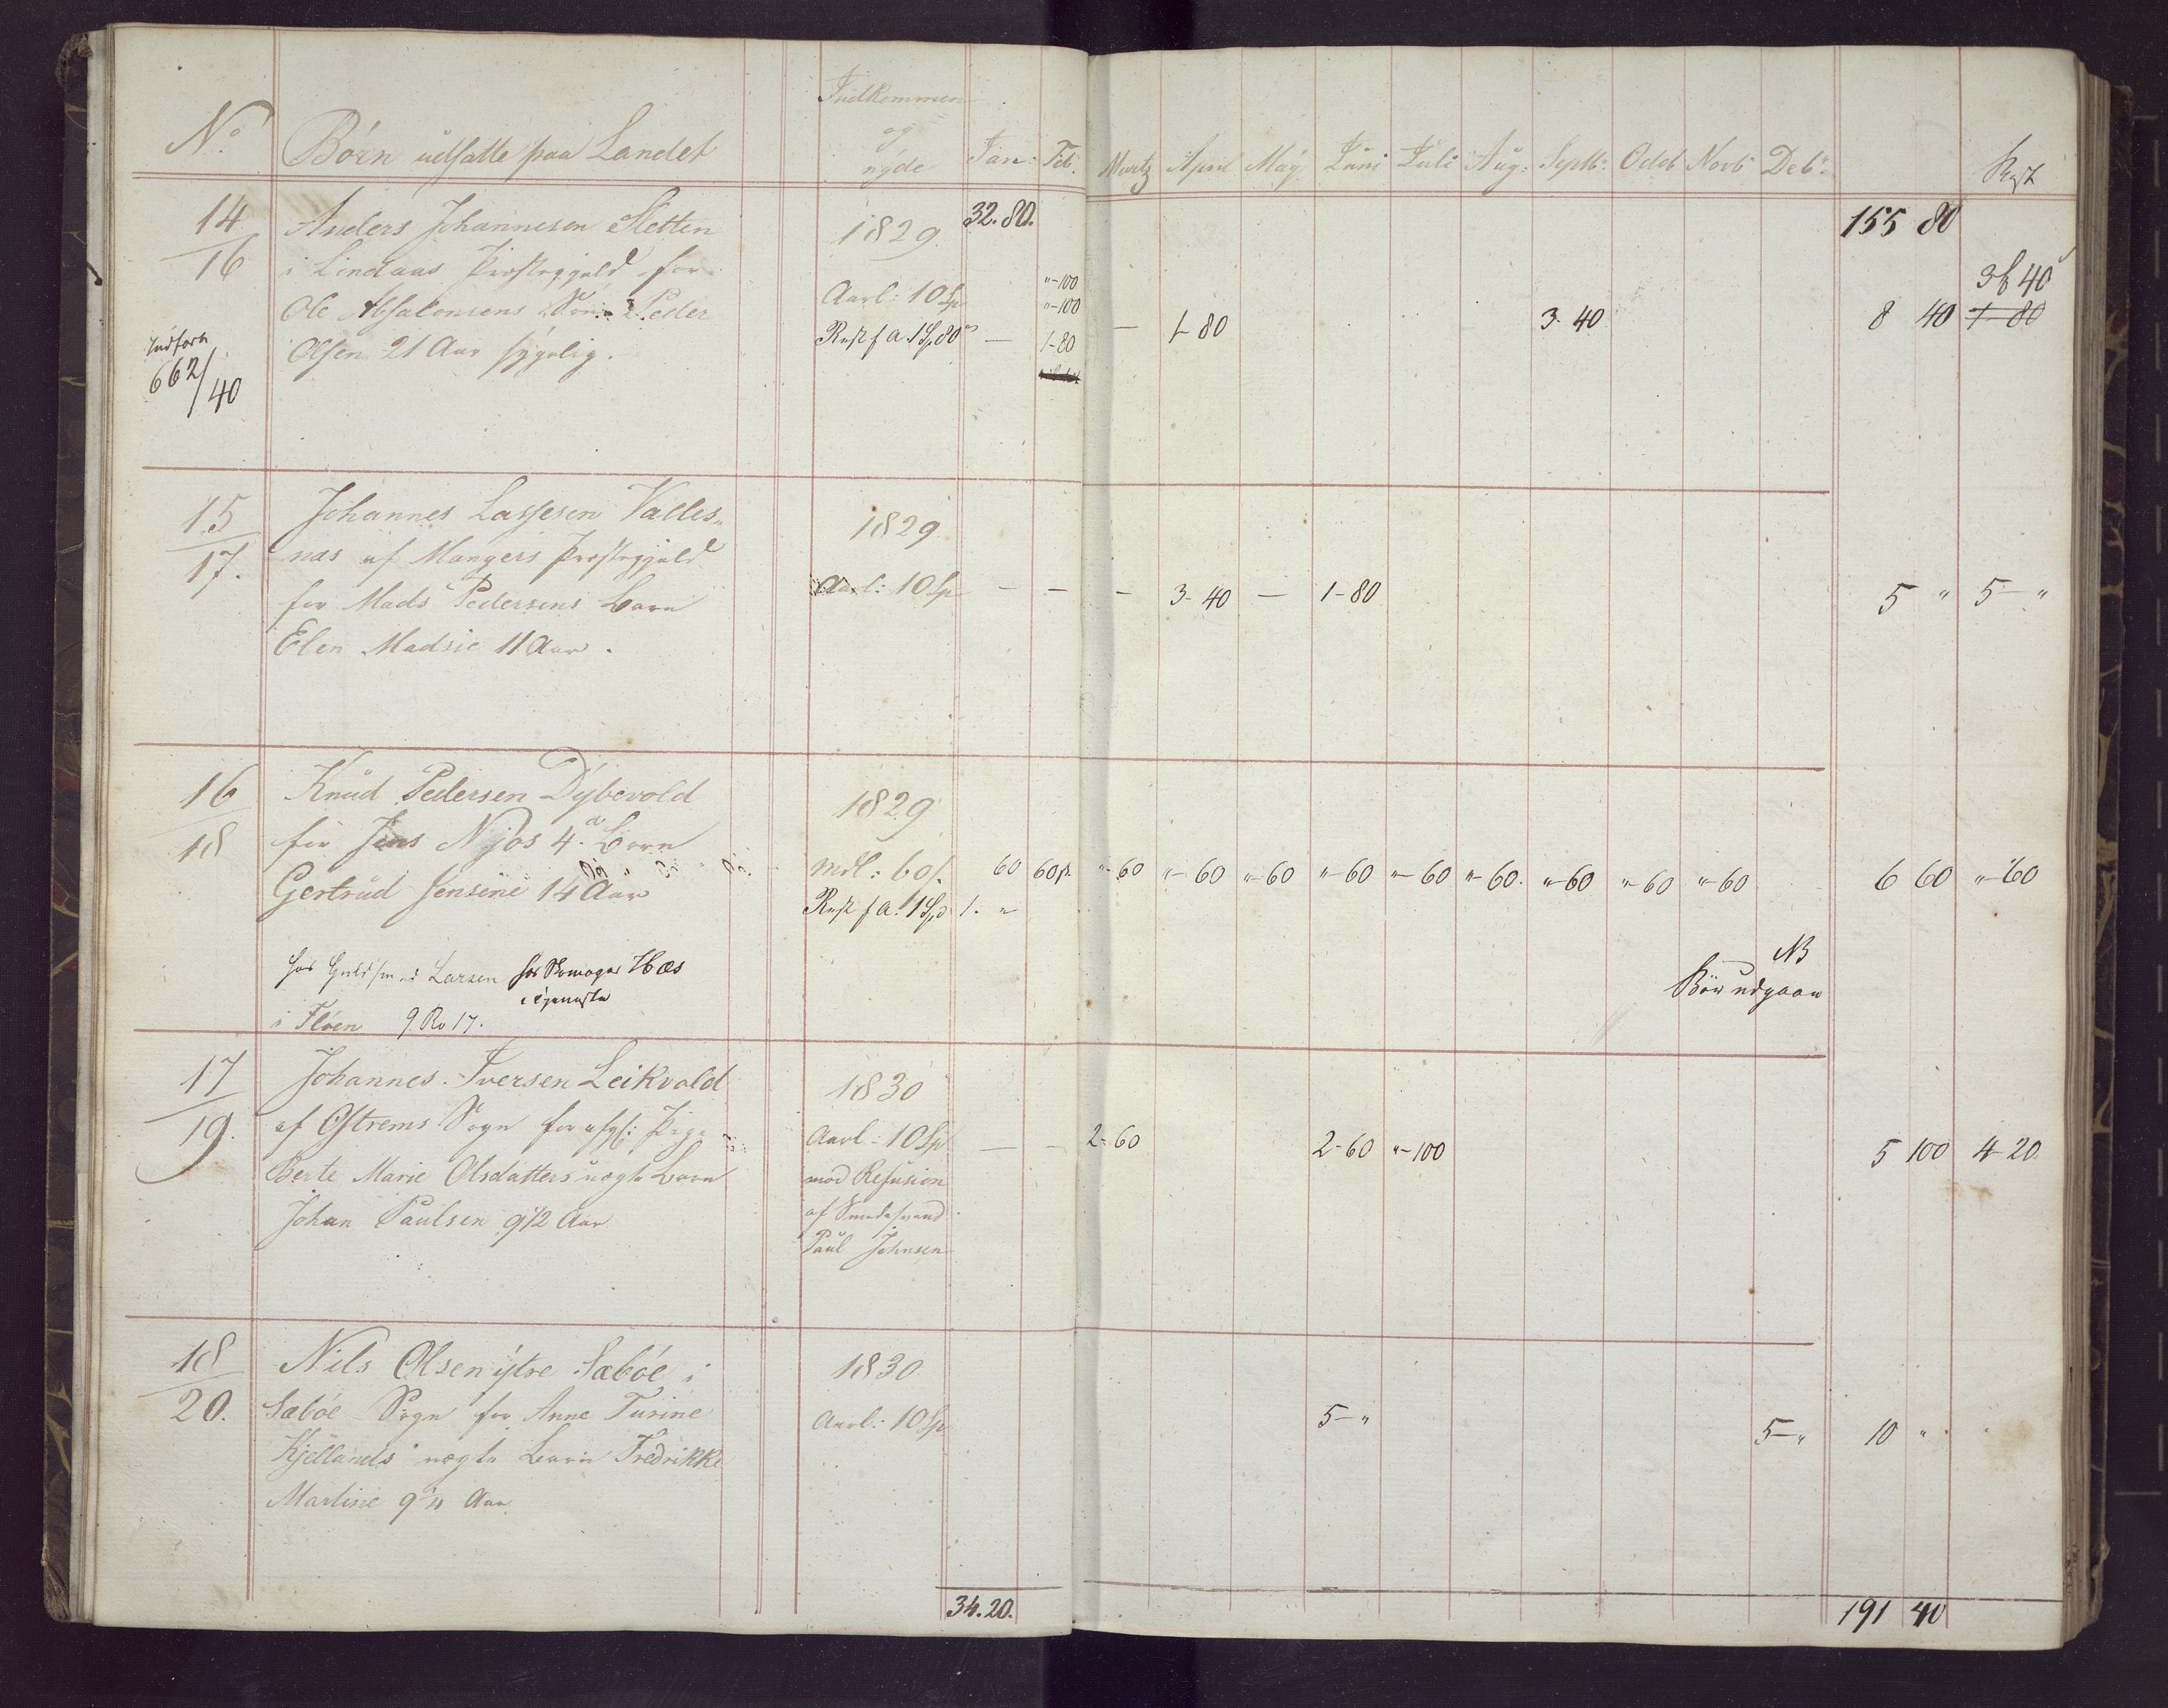 Indkommen
No Börn udsatte paa Landet og nyde Jan: Feb: Martz April May Juni Juli Aug: Septb: Octob Novb Deb: Rest
14 Anders Johannesen Sletten 1829 32.80. 155 80
16 i Lindaas Præstegjeld for "-100 3 40
Ole Absalonsens Sön Peder Aarl: 10 Sp "-100
Olsen 21 Aar sygelig. Rest f A. 1 Sp 80 — 1-80 — 1-80 3-40 8 40 1-80
Indført
662/40
15 Johannes Lassesen Valles-
17. nas af Mangers Præstegjeld 1829
for Mads Pedersens Barn Aarl: 10 Sp — — — 3-40 — 1-80 5 " 5 "
Elen Madsie 11 Aar.
16 Knud Pedersen Dybevold 1829
18 for Jens Njøs 4. Barn
Gertrud Jensine 14 Aar Mdl: 60 s. 60 60 s. "-60 "-60 "-60 "-60 "-60 "-60. "-60 "-60 "-60 6 60 "-60
Rest f A. 1 Sp 1. "
hos Guldsmed Larsen hos Skomager Hæs NB
i Tjeneste Bör udgaae
i Fløen 9 Ro 17.
17 Johannes Iversen Leikvold 1830
19. af Ostrems Sogn for afg: Pige Aarl: 10 Sp — — 2-60 2-60 "-100 5 100 4-20
Berte Marie Olsdatters uægte Barn mod Refusion
Johan Paulsen 9 1/2 Aar af Smedesvend
Paul Johnsen
18 Nils Olsen ytre Sæböe i 1830
20. Sæböe Sogn for Anne Turine Aarl: 10 Sp 5-" 5-" 10 "
Kjellands uægte Barn Fredrikke
Martine 9 1/4 Aar
34.20. 191 40